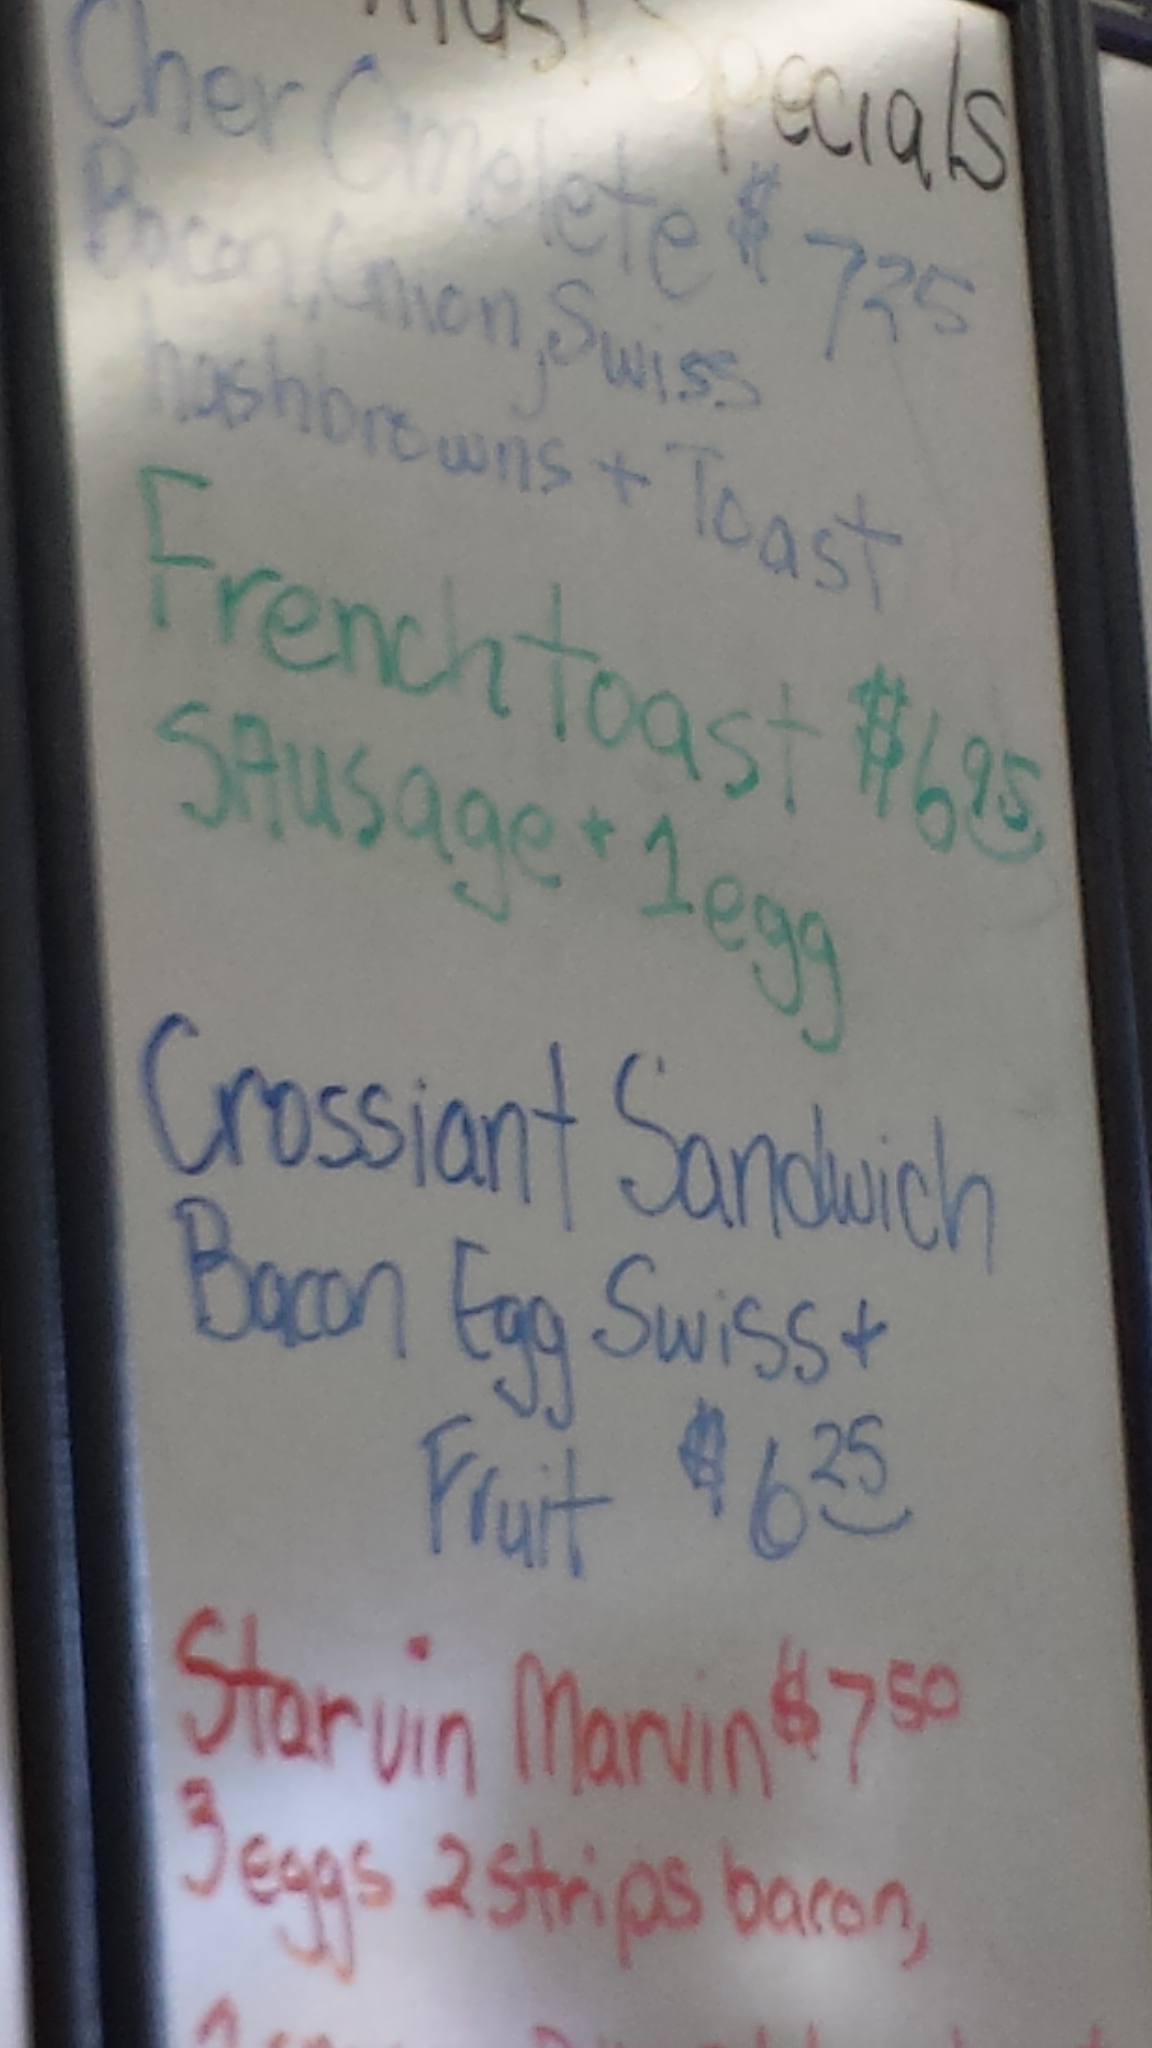 Specials
Cher Omelete $725
Bacon, Onion, Swiss
hashbrowns + Toast
French toast $695
SAusage + 1 egg
Crossiant Sandwich
Bacon Egg Swiss +
Fruit $625
Starvin Marvin $750
3 eggs 2 strips bacon,